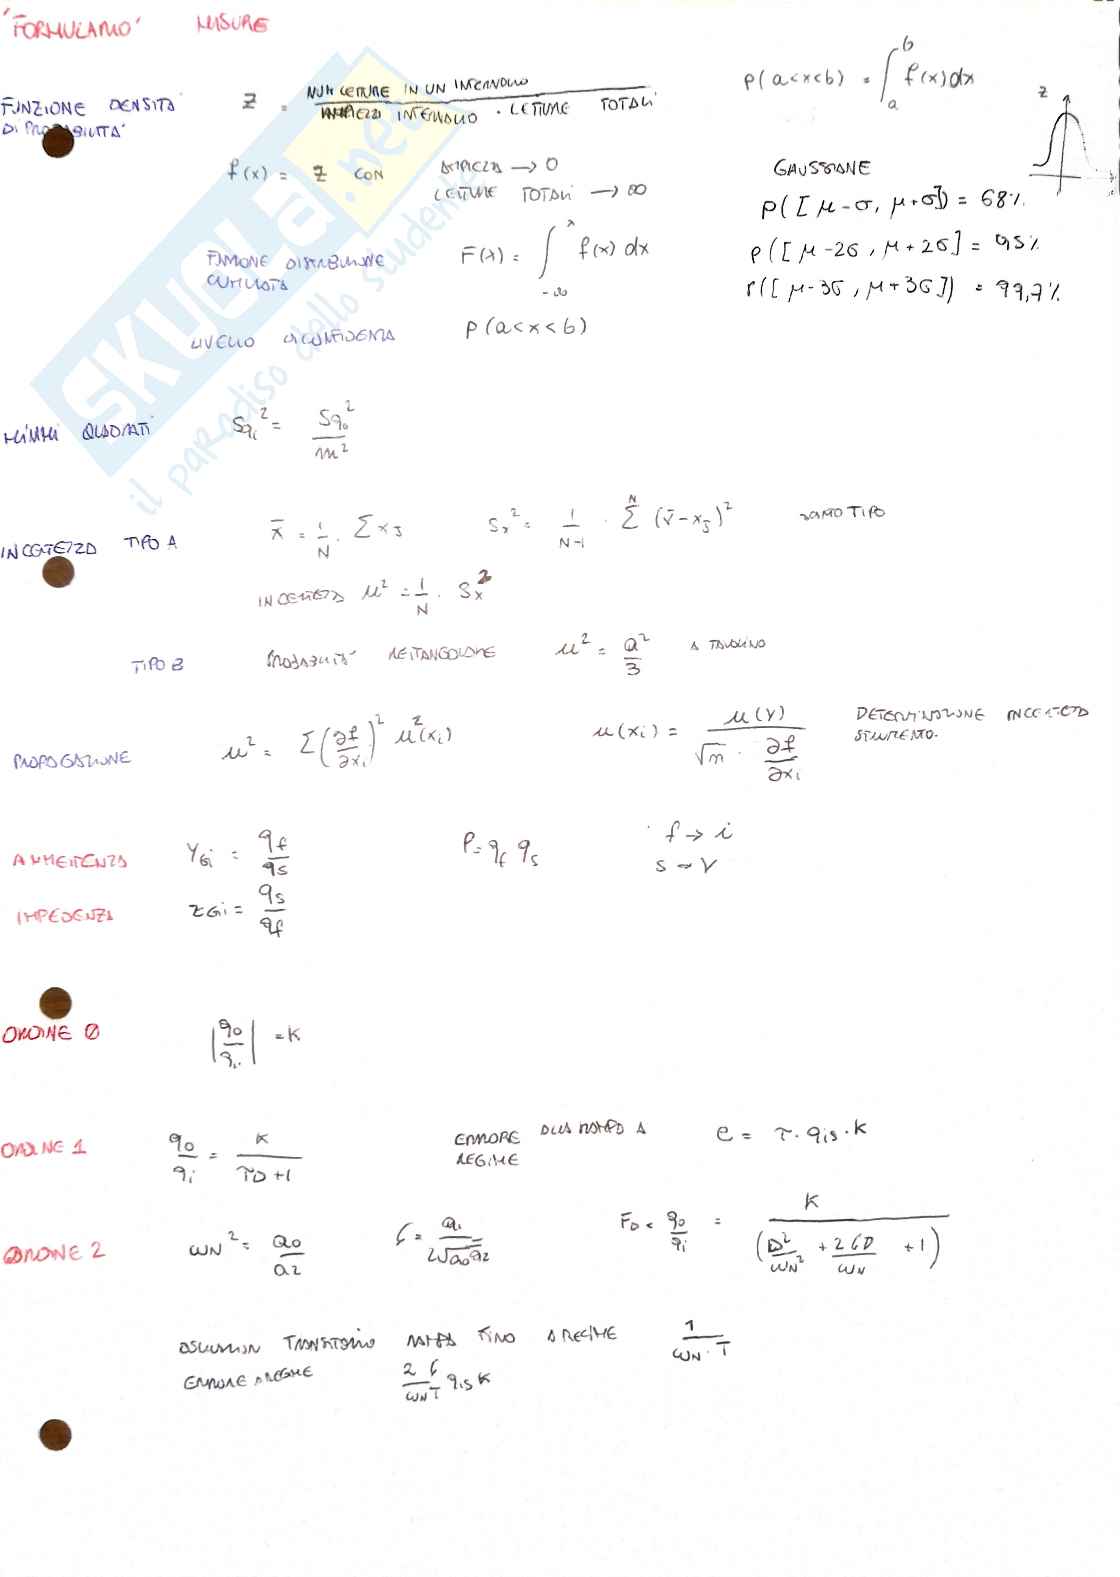 "FORMULARIO" MISURE
FUNZIONE DENSITÀ DI PROBABILITÀ
Z = NUM LETTURE IN UN INTERVALLO / AMPIEZZA INTERVALLO · LETTURE TOTALI
p(a<x<b) = ∫_a^b f(x)dx
z
f(x) = Z CON AMPIEZZA → 0
LETTURE TOTALI → ∞
GAUSSIANE
p([μ-σ, μ+σ]) = 68%
p([μ-2σ, μ+2σ] = 95%
p([μ-3σ, μ+3σ]) = 99,7%
FUNZIONE DISTRIBUZIONE CUMULATA
F(λ) = ∫_-∞^λ f(x) dx
LIVELLO DI CONFIDENZA p(a<x<b)
MINIMI QUADRATI Sqi² = Sq0² / m²
INCERTEZZA TIPO A x̄ = 1/N · Σ xj Sx² = 1/(N-1) · Σ^N (x̄-xj)²
INCERTEZZA u² = 1/N · Sx²
TIPO B PROBABILITÀ RETTANGOLARE u² = a²/3 A TAVOLINO
PROPAGAZIONE u² = Σ(∂f/∂xi)² u²(xi) u(xi) = u(Y) / (√m · ∂f/∂xi) DETERMINAZIONE INCERTEZZA STRUMENTO.
AMMETTENZA YGi = qf/qs P = qf qs f → i
s → V
IMPEDENZA ZGi = qs/qf
ORDINE 0 |q0/qi| = K
ORDINE 1 q0/qi = K / (τD+1) ERRORE ALLA RAMPA A REGIME e = τ · qis · K
ORDINE 2 ωN² = a0/a2 ζ = a1 / 2√a0a2 FD = q0/qi = K / (D²/ωN² + 2ζD/ωN + 1)
TRANSITORIO RAMPA FINO A REGIME 1 / ωN·T
ERRORE A REGIME 2ζ/ωNT qis K
SKUOLA.net
il paradiso dello studente